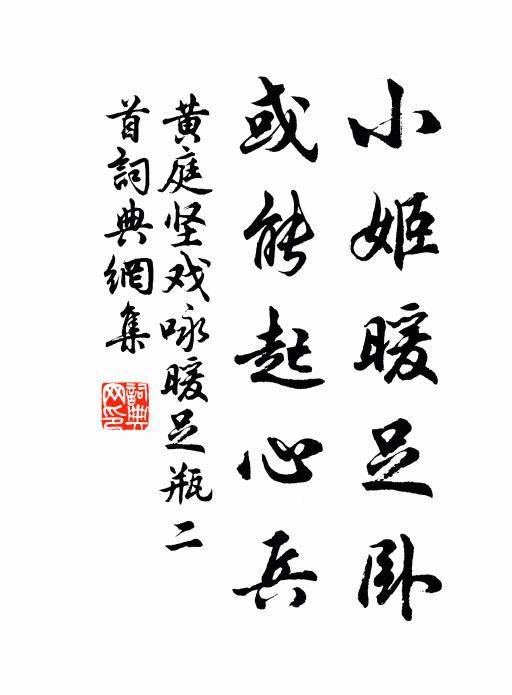 小姬暖足卧
或能起心兵
黄庭坚戏咏暖足瓶二
首詞典網集
詞典
网印